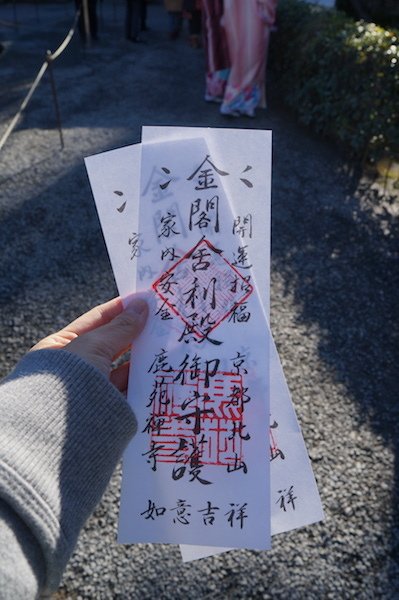 開運招福 京都北山
金閣舍利殿御守護
家内安全 鹿苑禅寺
如意吉祥
家内
祥